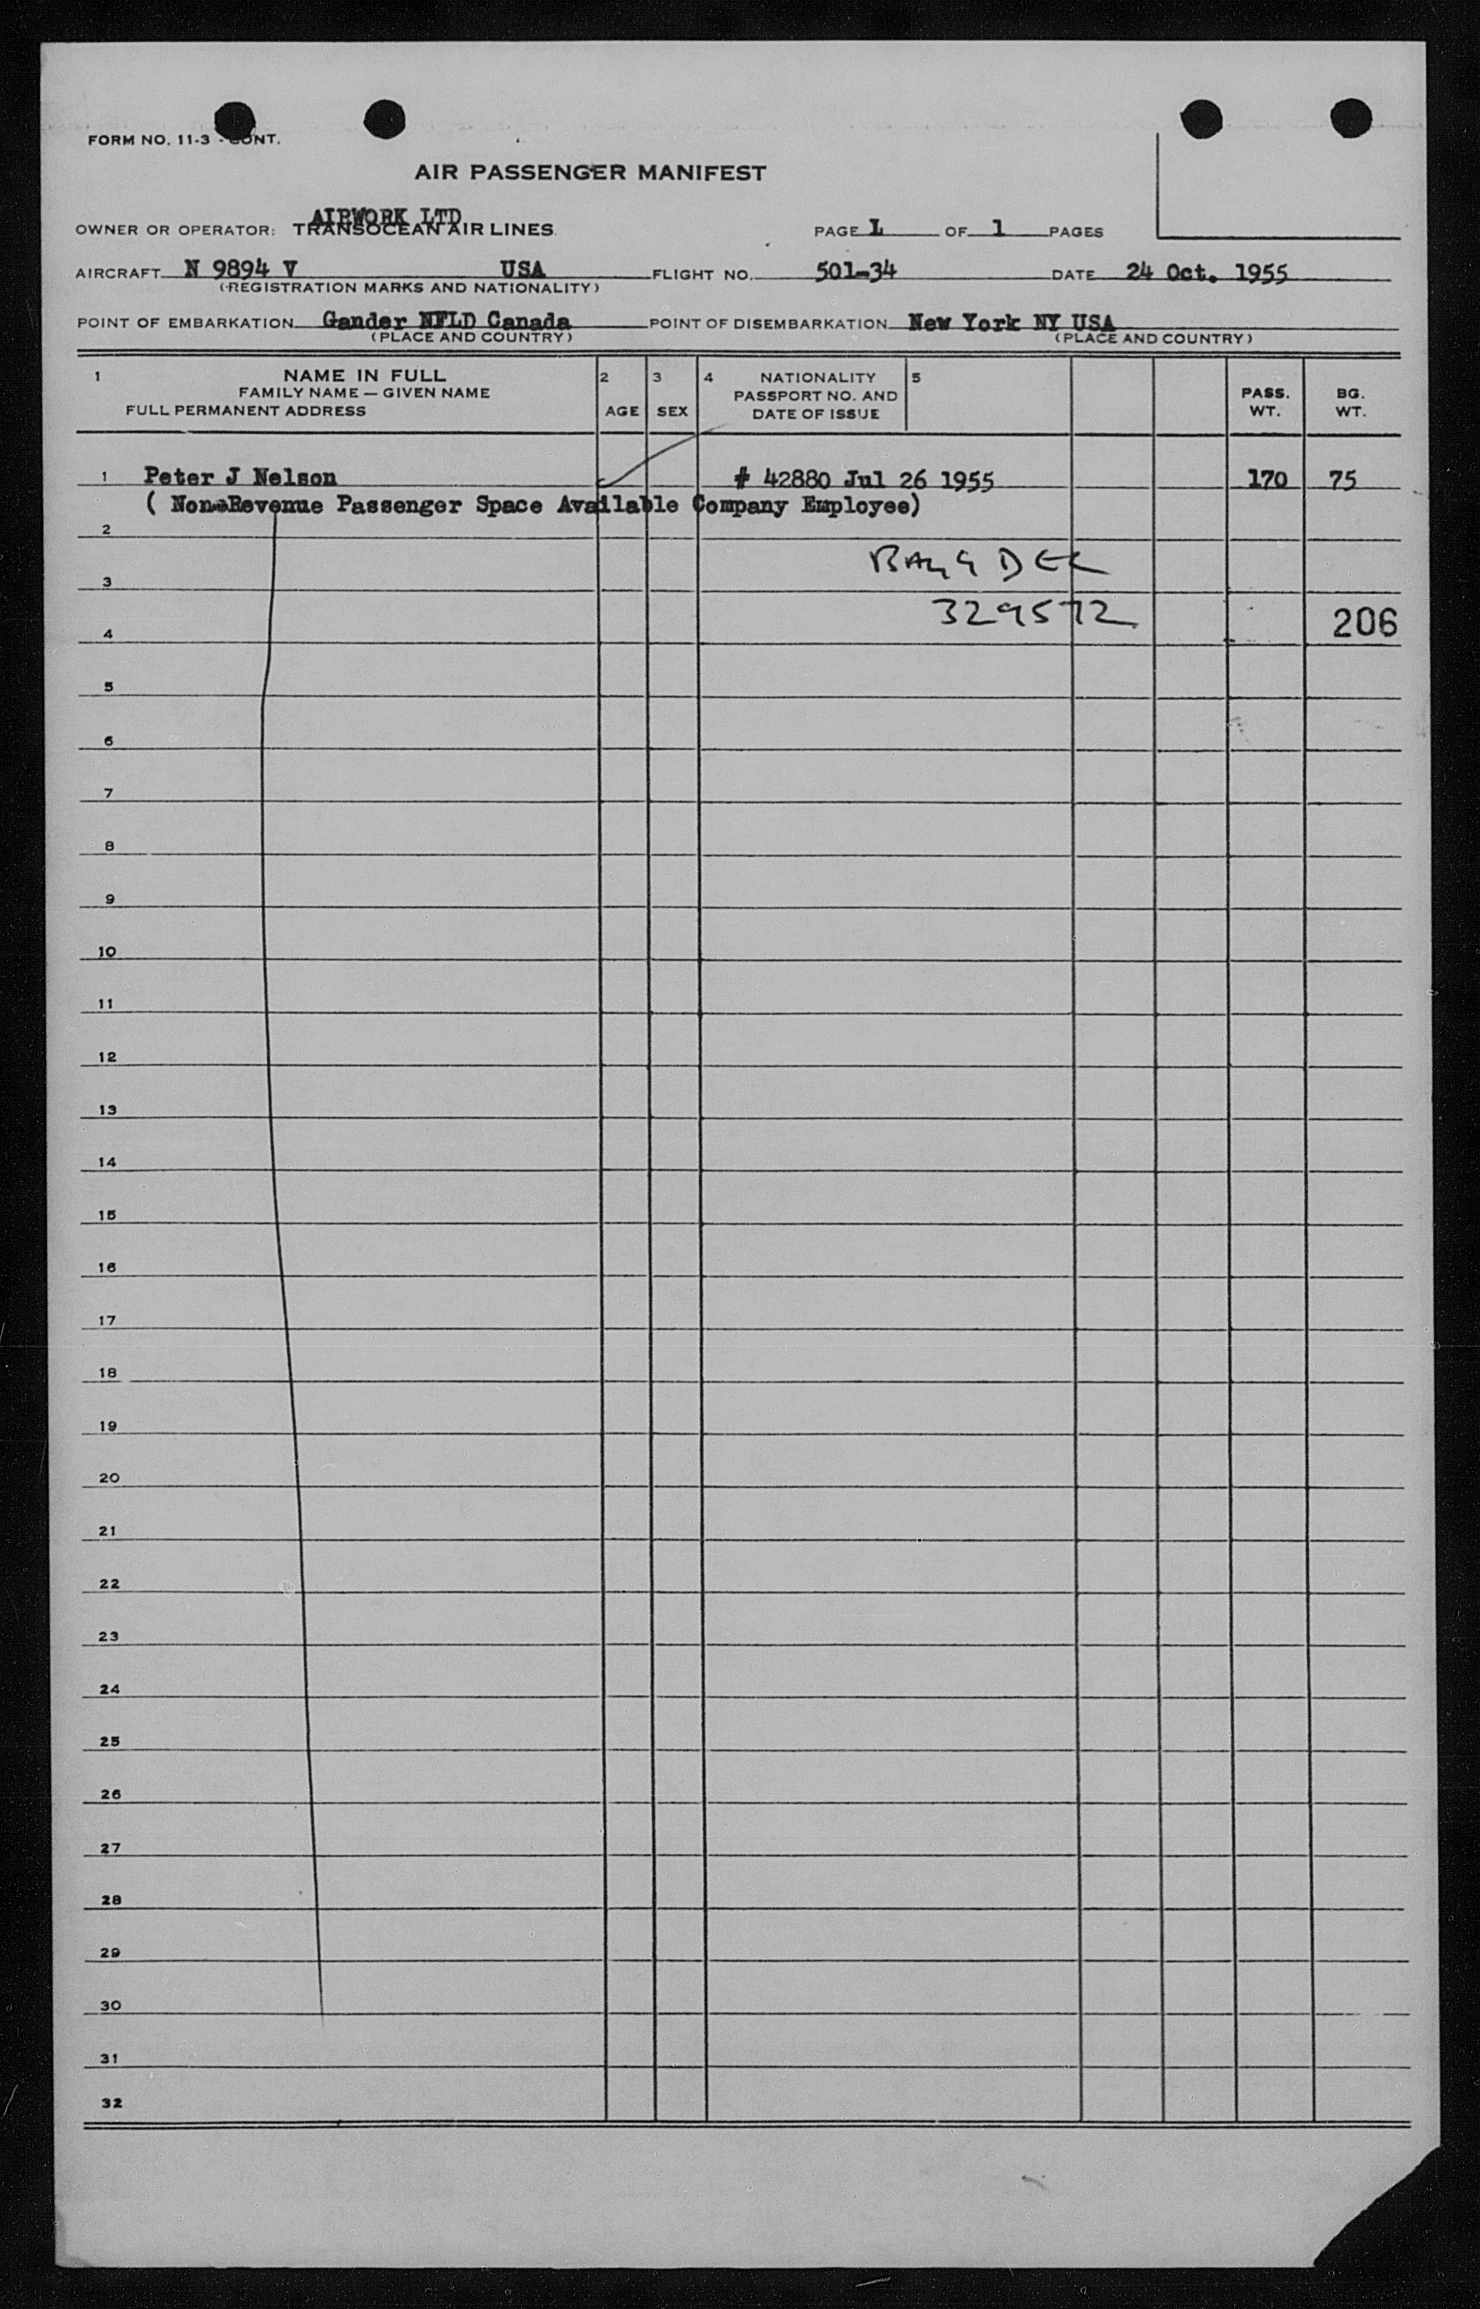 FORM NO. 11-3 - CONT.
AIR PASSENGER MANIFEST
AIRWORK LTD
OWNER OR OPERATOR: TRANSOCEAN AIR LINES PAGE L OF 1 PAGES
AIRCRAFT N 9894 V USA FLIGHT NO. 501-34 DATE 24 Oct. 1955
(REGISTRATION MARKS AND NATIONALITY)
POINT OF EMBARKATION Gander NFLD Canada POINT OF DISEMBARKATION New York NY USA
(PLACE AND COUNTRY) (PLACE AND COUNTRY)
1 NAME IN FULL 2 3 4 NATIONALITY 5
FAMILY NAME — GIVEN NAME PASSPORT NO. AND PASS. BG.
FULL PERMANENT ADDRESS AGE SEX DATE OF ISSUE WT. WT.
1 Peter J Nelson # 42880 Jul 26 1955 170 75
( Non-Revenue Passenger Space Available Company Employee)
2
BAGG DEC
3
329572
4 206
5
6
7
8
9
10
11
12
13
14
15
16
17
18
19
20
21
22
23
24
25
26
27
28
29
30
31
32